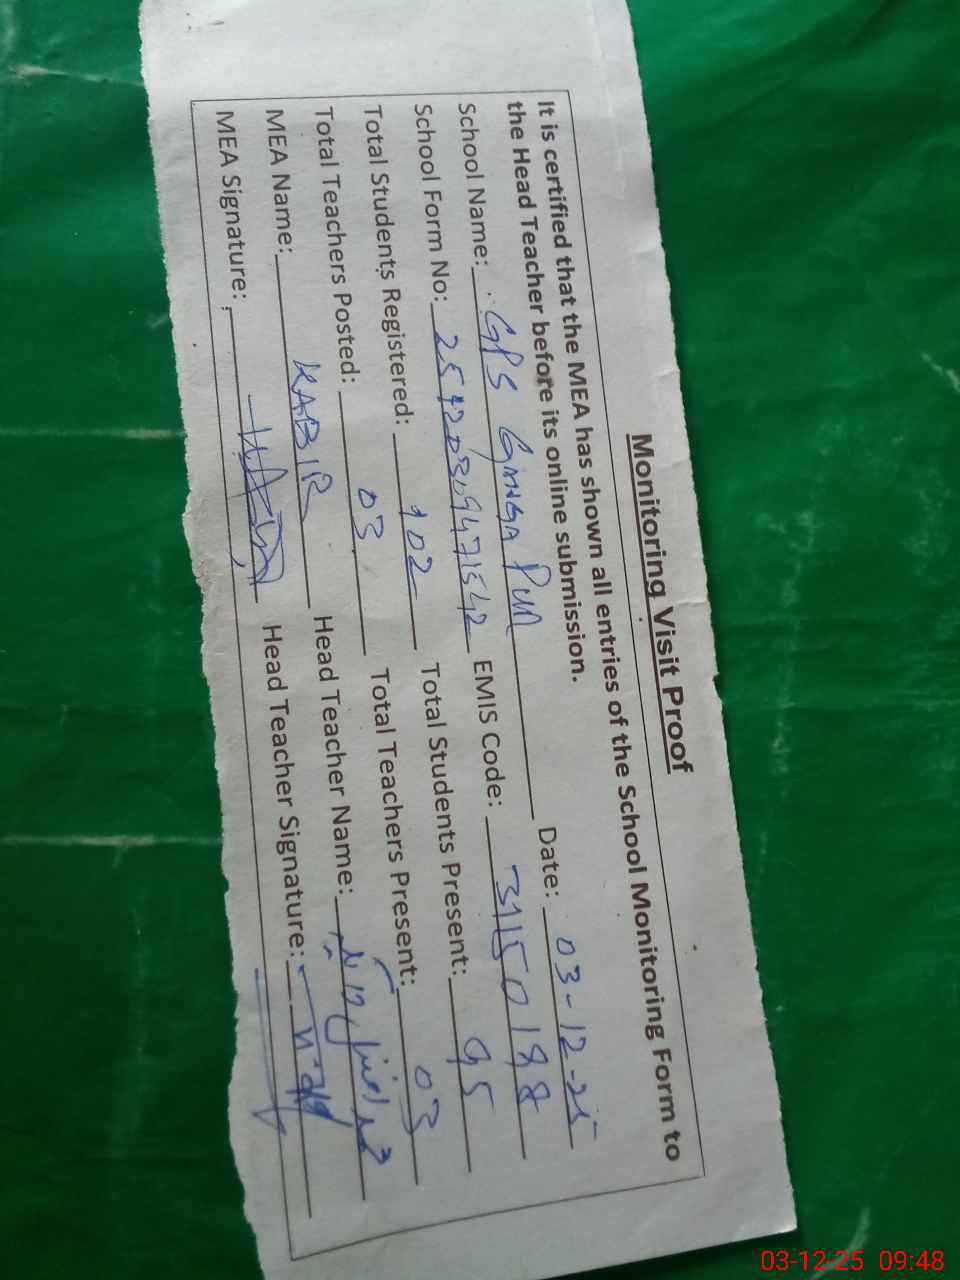 Monitoring Visit Proof
It is certified that the MEA has shown all entries of the School Monitoring Form to
the Head Teacher before its online submission.
School Name: GPS Ganga Pur Date: 03-12-25
School Form No: EMIS Code: 31150188
Total Students Registered: 102 Total Students Present: 95
Total Teachers Posted: 03 Total Teachers Present: 03
MEA Name: KABIR Head Teacher Name:
MEA Signature: Head Teacher Signature:
03-12-25 09:48